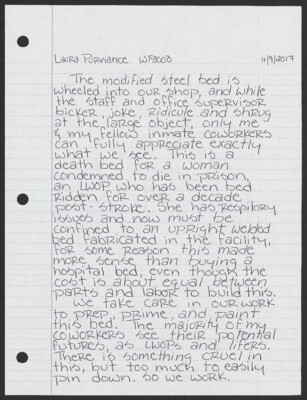 Laura Purviance WF3003 11/9/2017
The modified steel bed is
wheeled into our shop, and while
the staff and office supervisor
bicker, joke, ridicule and shrug
at the large object, only me
& my fellow inmate coworkers
can fully appreciate exactly
what we see. This is a
death bed for a woman
condemned to die in prison,
an LWOP who has been bed
ridden for over a decade
post-stroke. She has respitory
issues and now must be
confined to an upright welded
bed fabricated in the facility,
for some reason this made
more sense than buying a
hospital bed, even though the
cost is about equal between
parts and labor to build this.
We take care in our work
to prep, prime, and paint
this bed. The majority of my
coworkers see their potential
futures, as LWOPs and lifers.
There is something cruel in
this, but too much to easily
pin down. So we work.